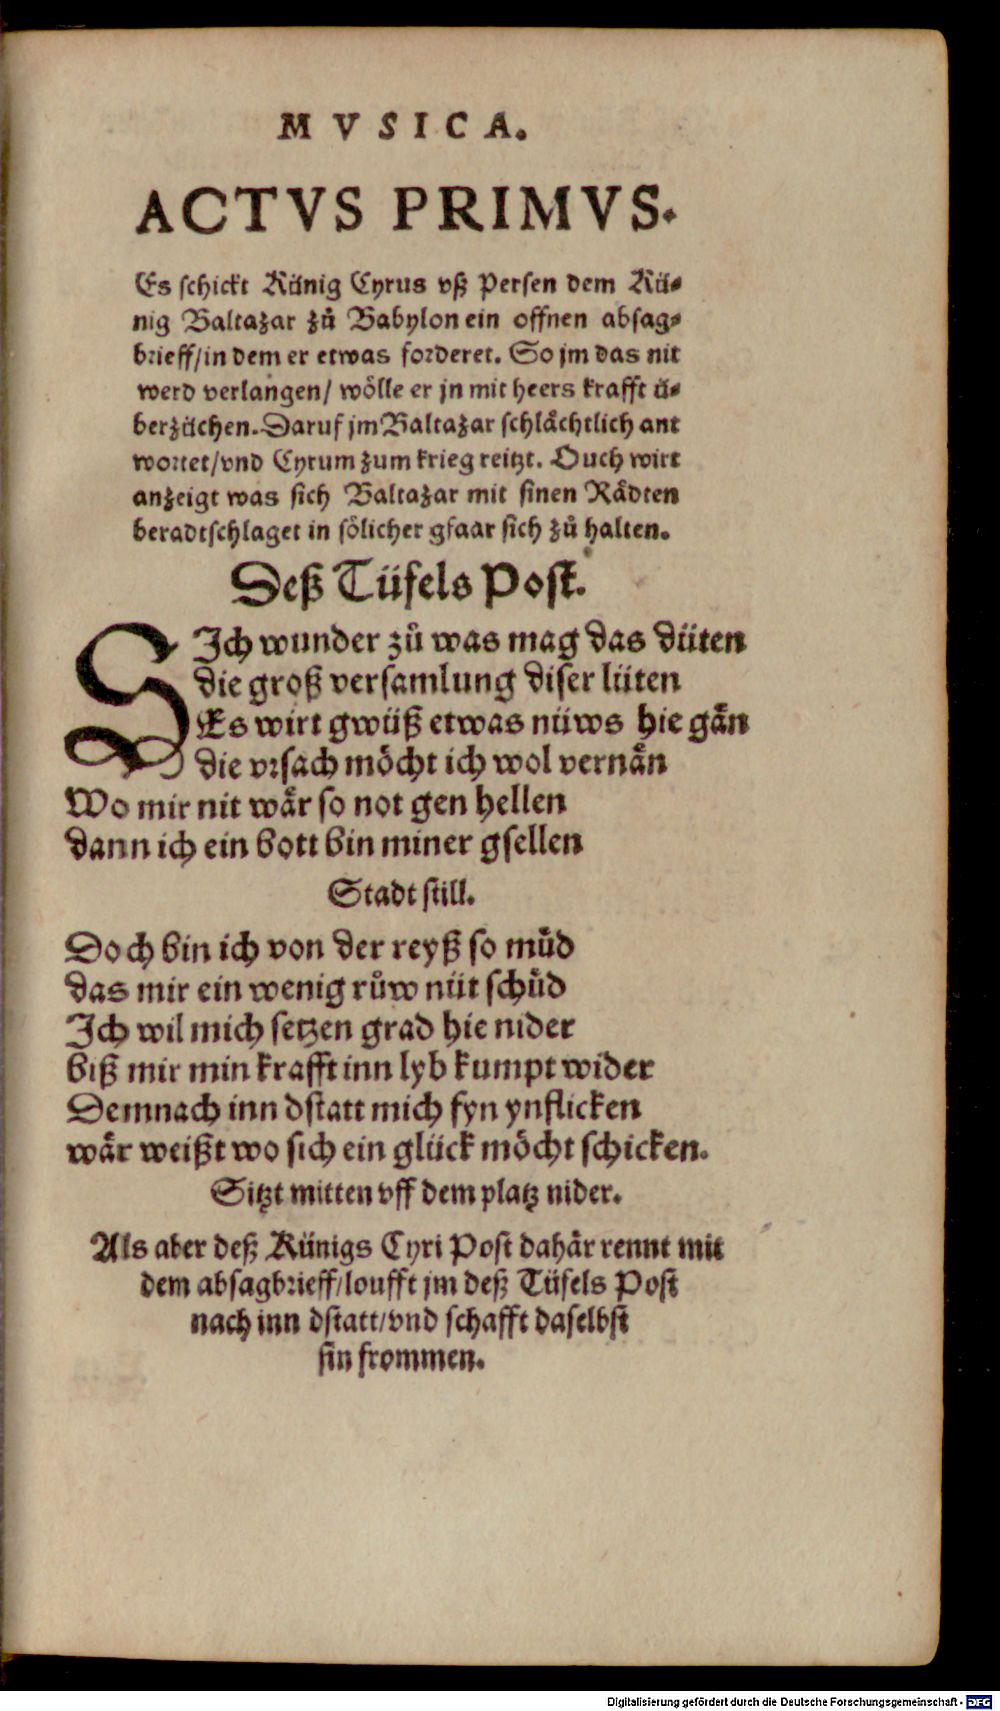 MVSICA.
ACTVS PRIMVS.
Es schickt Künig Cyrus vß Persen dem Kü-
nig Baltazar zů Babylon ein offnen absag-
brieff/in dem er etwas forderet. So jm das nit
werd verlangen/ wölle er jn mit heers krafft ü-
berzüchen. Daruf jm Baltazar schlächtlich ant
wortet/vnd Cyrum zum krieg reitzt. Ouch wirt
anzeigt was sich Baltazar mit sinen Rädten
beradtschlaget in sölicher gfaar sich zů halten.
Deß Tüfels Post.
SIch wunder zů was mag das düten
die groß versamlung diser lüten
Es wirt gwüß etwas nüws hie gän
die vrsach möcht ich wol vernän
Wo mir nit wär so not gen hellen
dann ich ein bott bin miner gsellen
Stadt still.
Doch bin ich von der reyß so müd
das mir ein wenig růw nüt schüd
Ich wil mich setzen grad hie nider
biß mir min krafft inn lyb kumpt wider
Demnach inn dstatt mich fyn ynflicken
wär weißt wo sich ein glück möcht schicken.
Sitzt mitten vff dem platz nider.
Als aber deß Künigs Cyri Post dahär rennt mit
dem absagbrieff/loufft jm deß Tüfels Post
nach inn dstatt/vnd schafft daselbst
sin frommen.
Digitalisierung gefördert durch die Deutsche Forschungsgemeinschaft - DFG